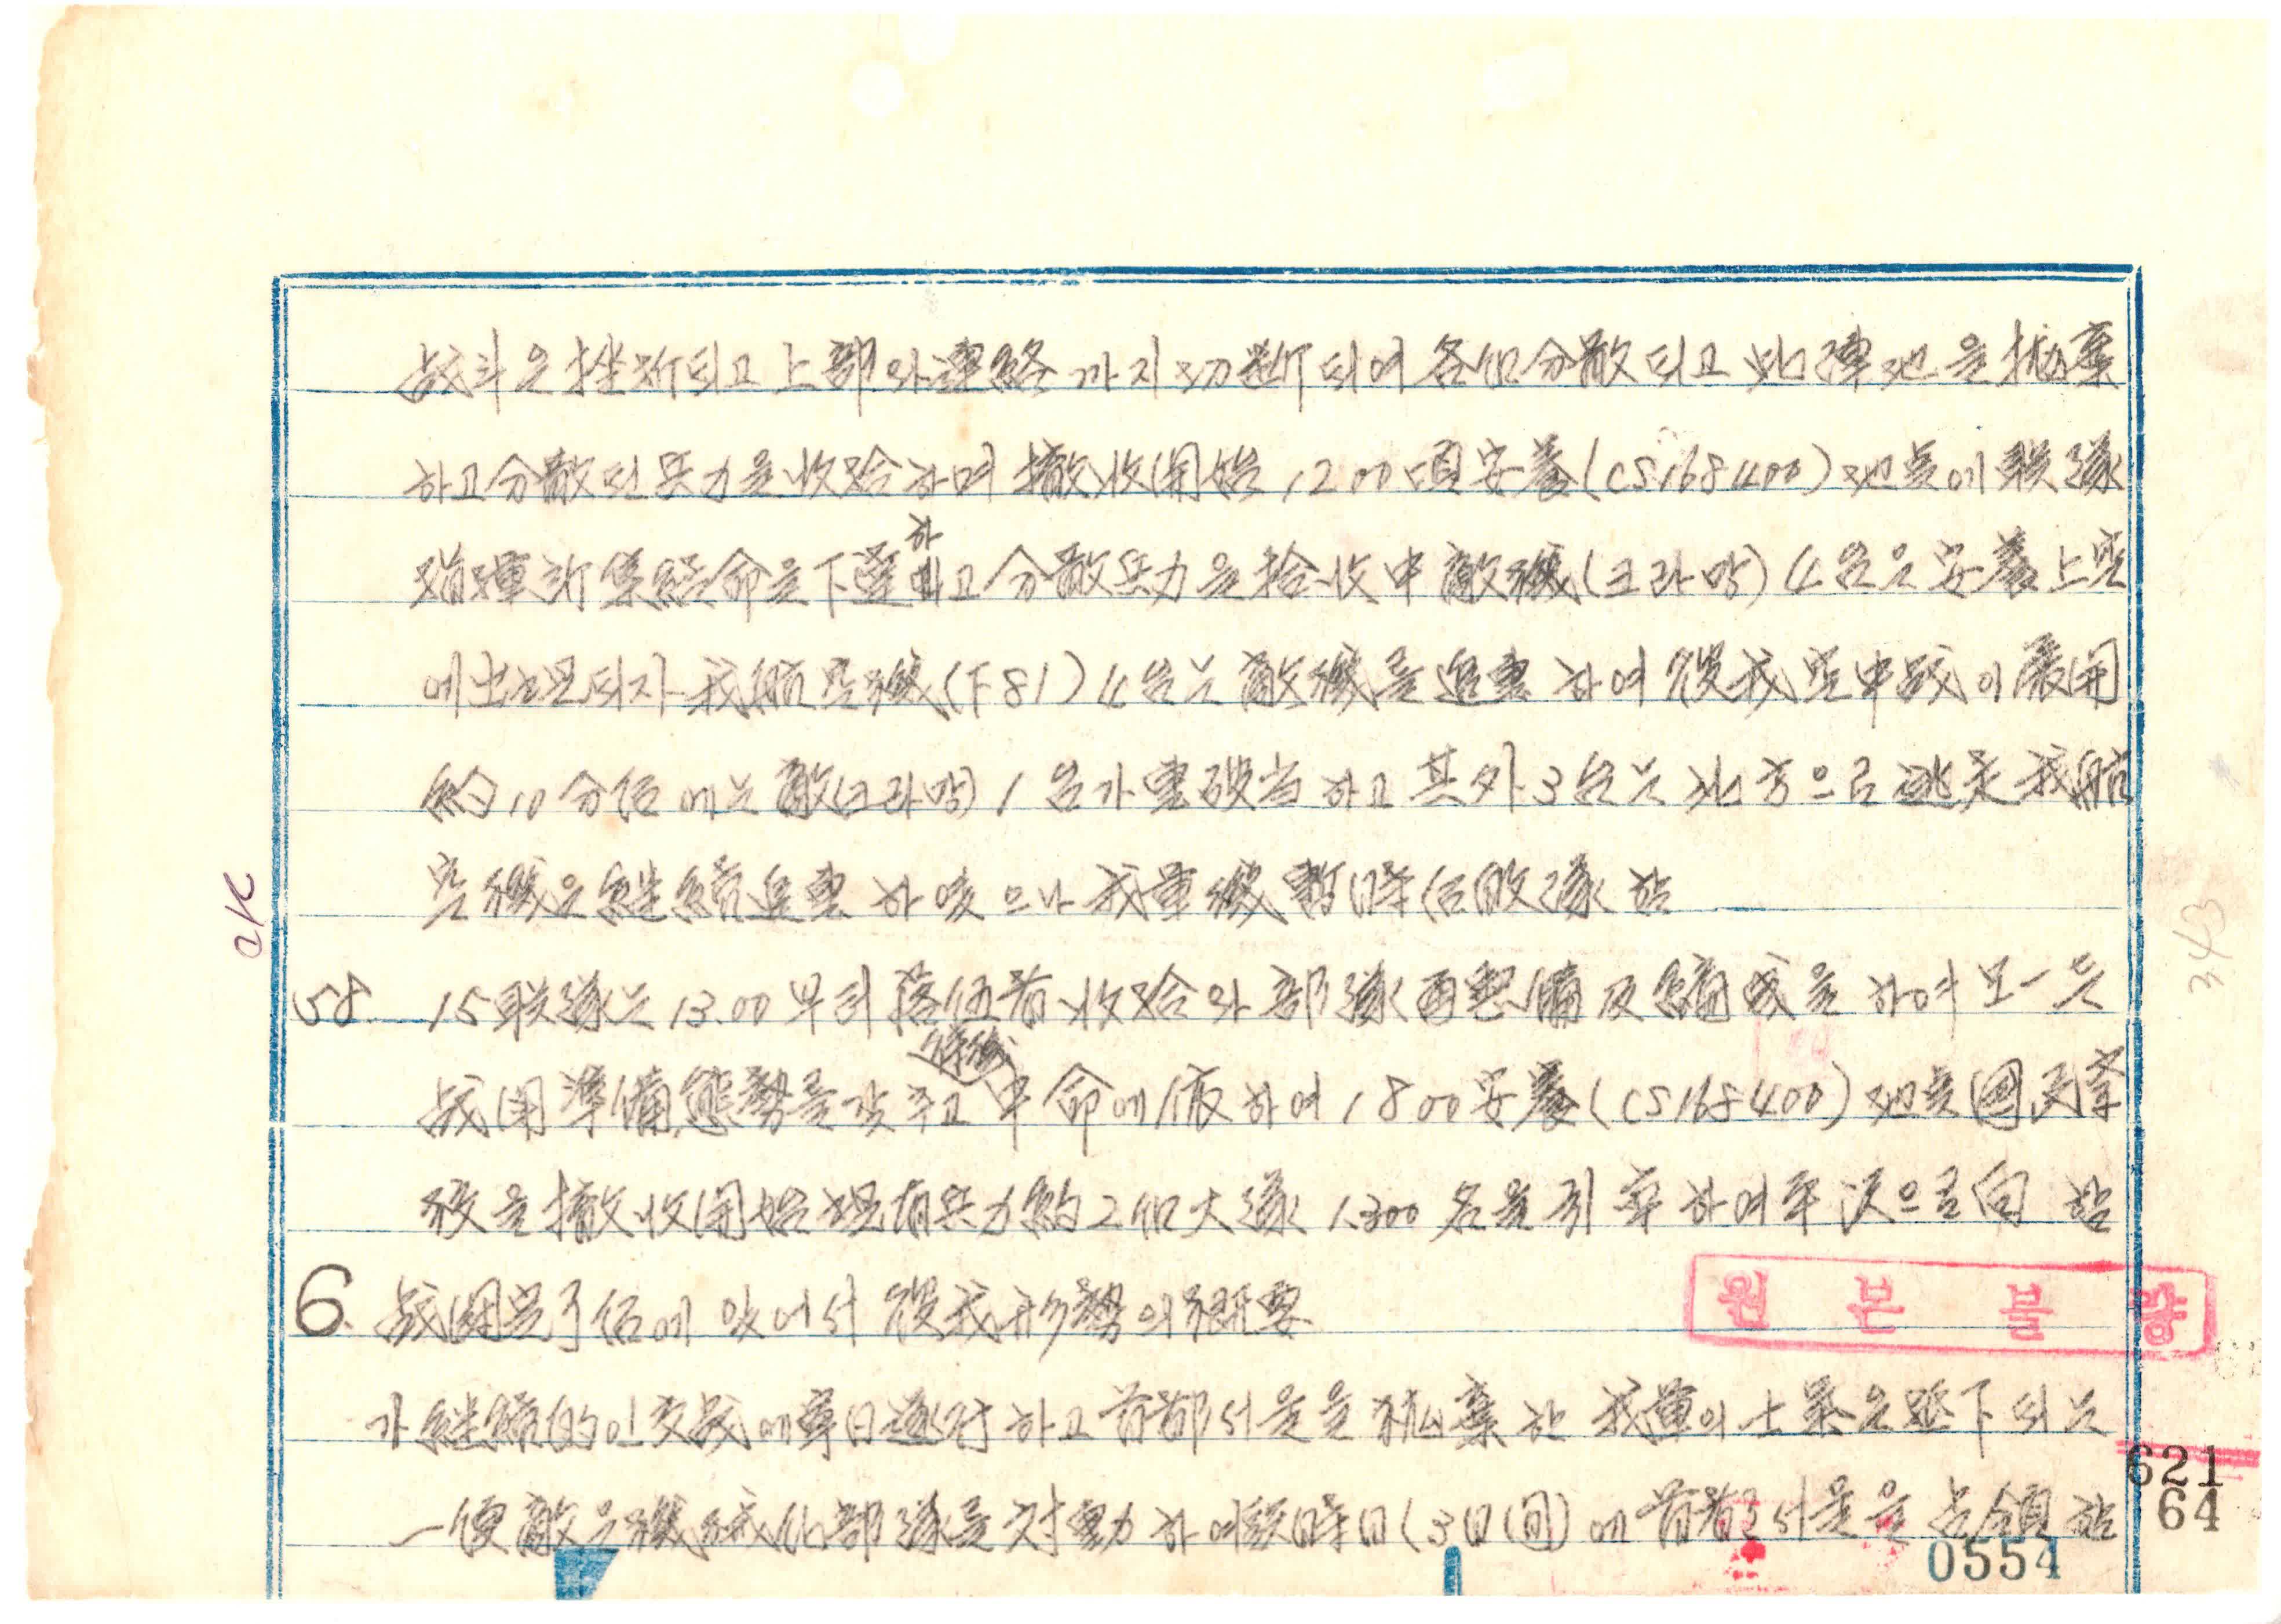 战斗은 挫折되고 上部와 連絡까지 切断되여 各個分散되고 此 陣地을 抛棄
하고 分散된 兵力을 收拾하며 撤收開始 1200頃 安養(CS168400)地点에 联隊
指揮所 集結命을 下達하고 分散兵力을 拾收中 敵機(크라망) 4台은 安養上空
에 出現되자 我航空機(F81) 4台는 敵機를 追擊하여 彼我空中战이 展開
約10分后에는 敵(크라망) 1台가 擊破当하고 其外 3台는 北方으로 逃走 我航
空機은 継続追擊하였으나 我軍機 暫時后 敗退함
58. 15联隊는 13.00부터 落伍者收拾와 部隊再整備及編成을 하여 모ー든
战闘準備態勢를 갖추고 命에 依하여 1800 安養(CS168400)地点 國民学
校을 撤收開始 現有兵力 約2個大隊 1.300名을 引率하여 水原으로 向함
6. 战闘完了后에 있어서 彼我形勢의 槪要
가 継続的인 交战에 首都서울을 抛棄한 我軍의 士氣은 低下되는
一便 敵은 機械化部隊를 하여 短時日(3日間)에 首都서울을 占領함
OK
343
원본불량
621
64
0554